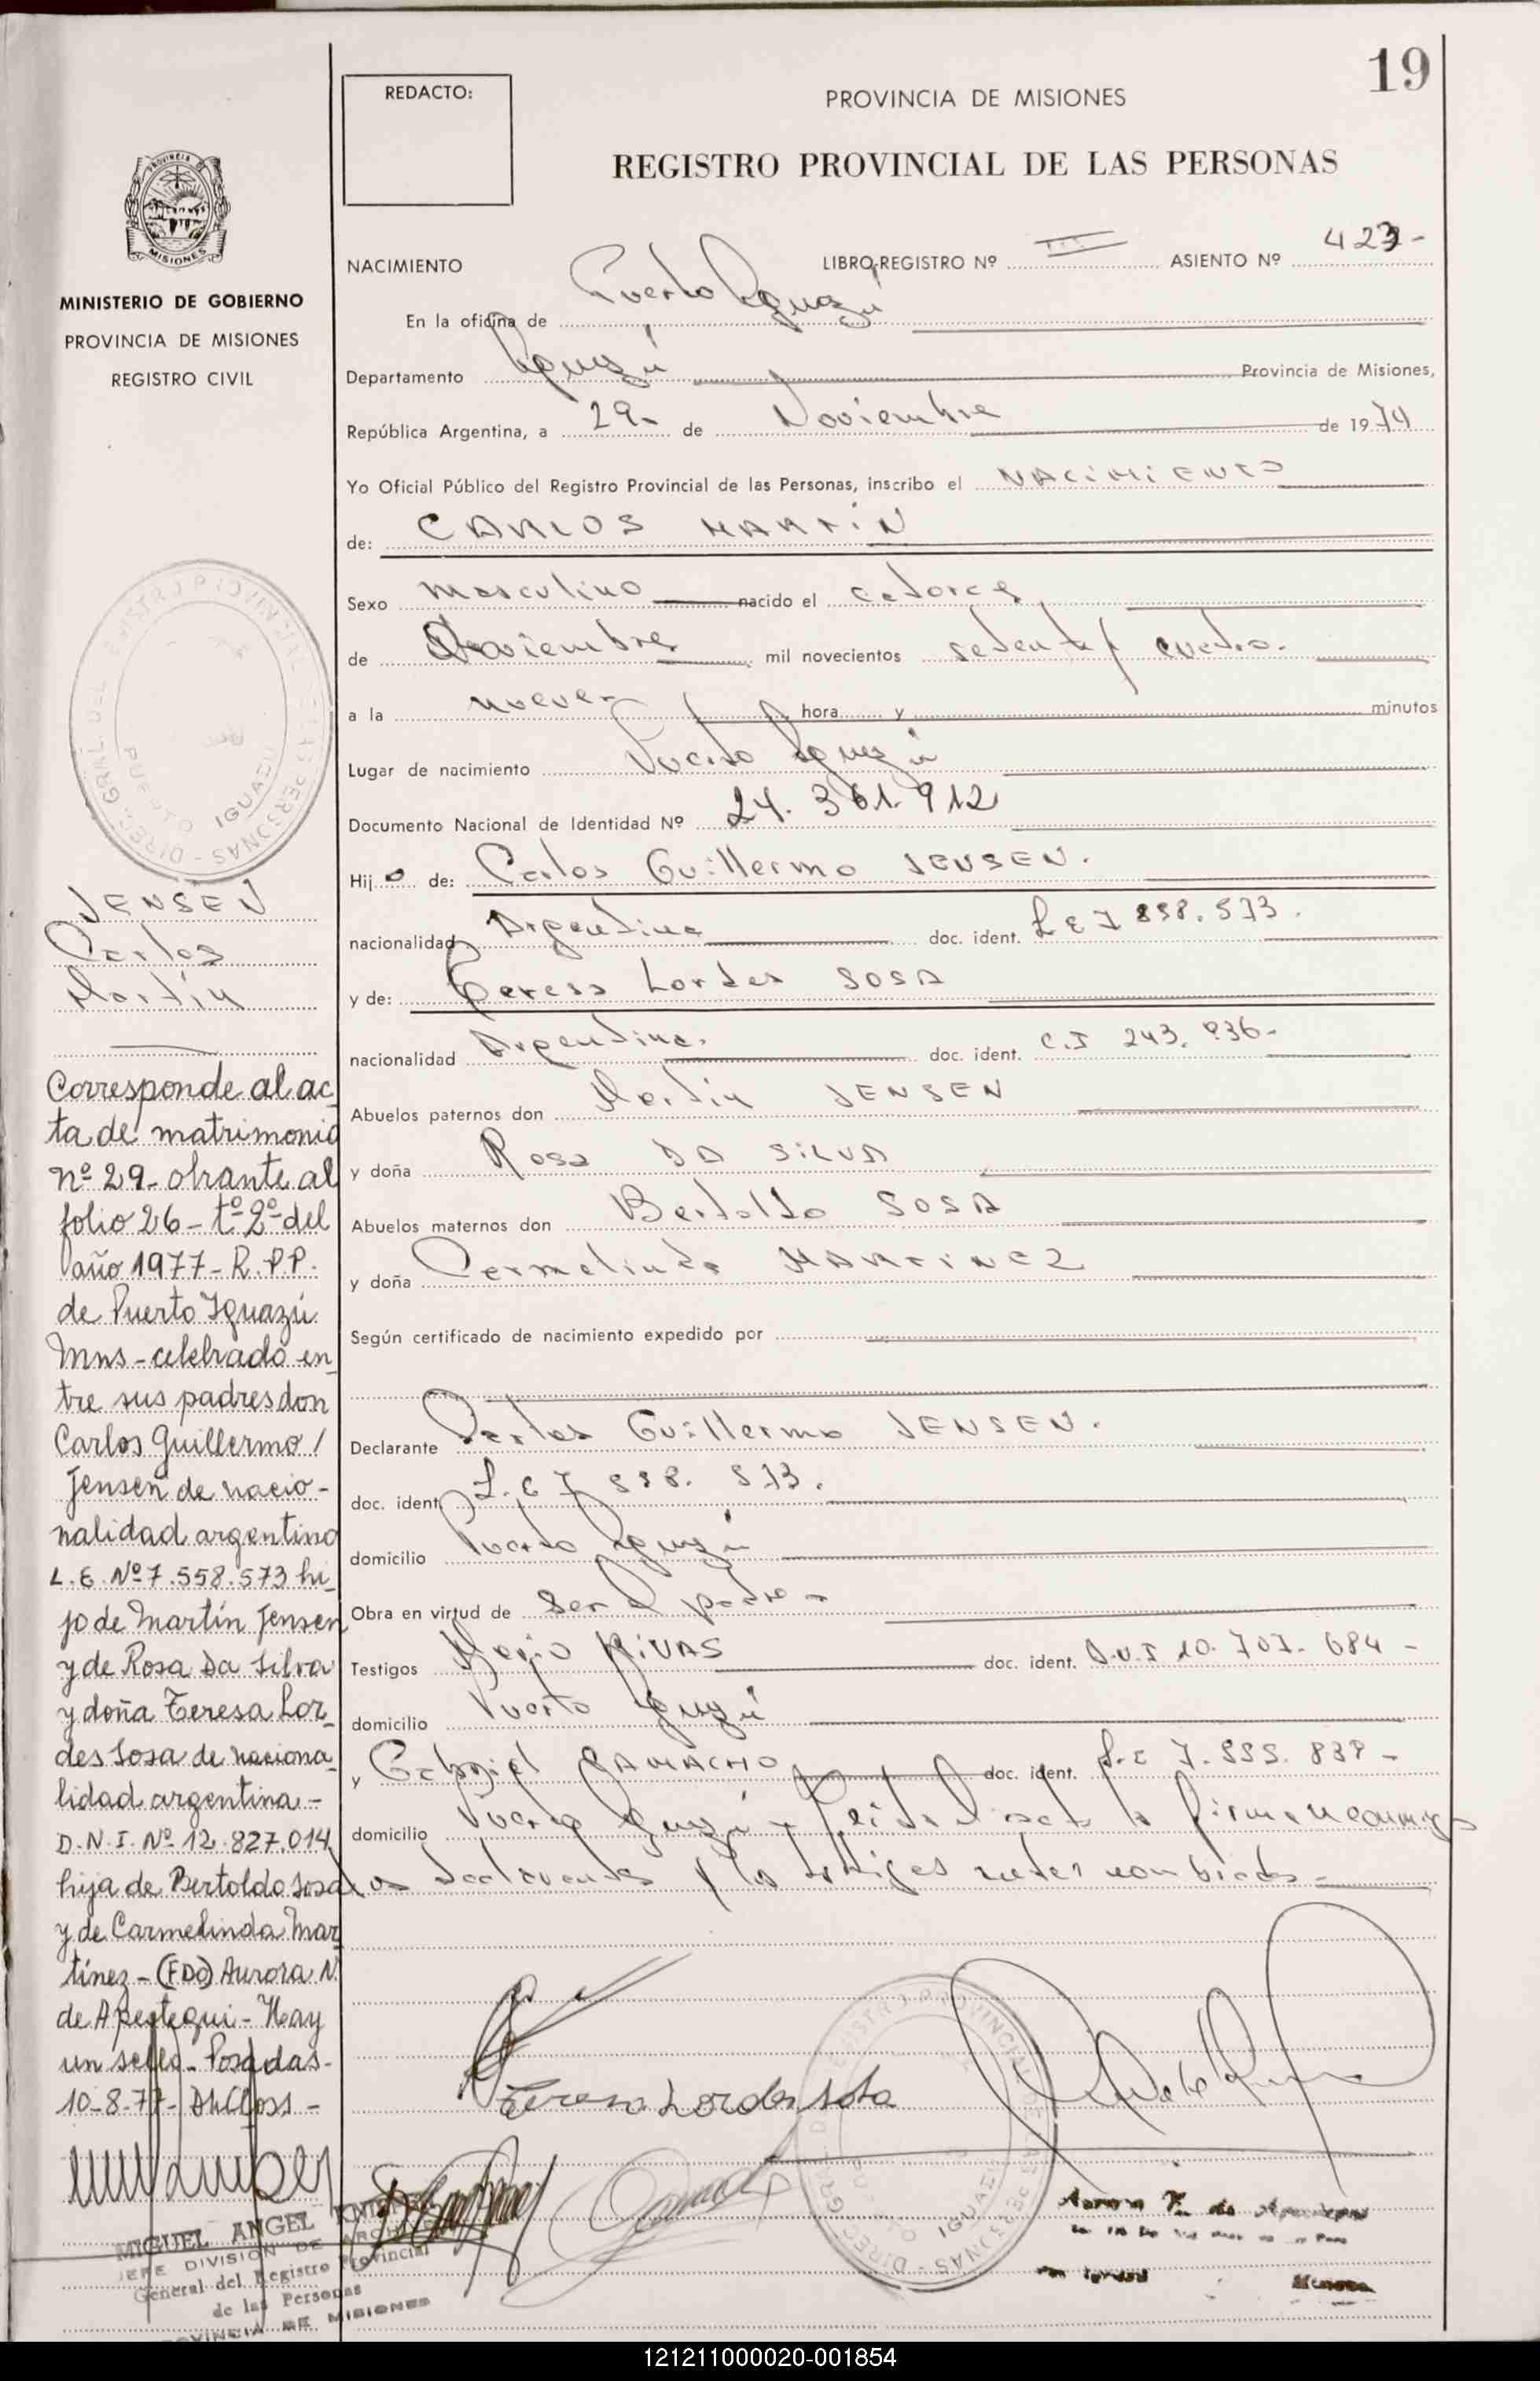 19
REDACTO:
PROVINCIA DE MISIONES
REGISTRO PROVINCIAL DE LAS PERSONAS
MISIONES
MINISTERIO DE GOBIERNO
PROVINCIA DE MISIONES
REGISTRO CIVIL
NACIMIENTO LIBRO-REGISTRO Nº III ASIENTO Nº 423-
En la oficina de Puerto Iguazú
Departamento Iguazú Provincia de Misiones,
República Argentina, a 29- de Noviembre de 1974
Yo Oficial Público del Registro Provincial de las Personas, inscribo el NACIMIENTO
de: CARLOS MARTIN
Sexo masculino nacido el catorce
de Noviembre mil novecientos setenta y cuatro.
a la nueve hora y minutos
Lugar de nacimiento Puerto Iguazú
Documento Nacional de Identidad Nº 24.361.912
Hijo de: Carlos Guillermo JENSEN.
nacionalidad Argentina doc. ident. L E 7 558.573.
y de: Teresa Lordes SOSA
nacionalidad Argentina. doc. ident. C.I 243.936-
Abuelos paternos don Martín JENSEN
y doña Rosa DA SILVA
Abuelos maternos don Bertoldo SOSA
y doña Carmelinda MARTINEZ
Según certificado de nacimiento expedido por
Declarante Carlos Guillermo JENSEN.
doc. ident. L.E 7 558. 573.
domicilio Puerto Iguazú
Obra en virtud de Ser el padre-
Testigos Mario RIVAS doc. ident. D.N.I 10.707.684-
domicilio Puerto Iguazú
y Gabriel CAMACHO doc. ident. L.E 7.555.838-
domicilio Puerto Iguazú y leída el acta la firman conmigo
los declarantes y los testigos antes nombrados-
Teresa Lordes Sosa
JENSEN
Carlos
Martín
Corresponde al ac-
ta de matrimonio
nº 29- obrante al
folio 26- tº 2º del
año 1977- R.P.P.
de Puerto Iguazú
Mns-celebrado en-
tre sus padres don
Carlos Guillermo/
Jensen de nacio-
nalidad argentino
L.E. Nº 7.558.573 hi-
jo de Martín Jensen
y de Rosa Da Silva
y doña Teresa Lor-
des Sosa de naciona-
lidad argentina-
D.N.I. Nº 12.827.014
hija de Bertoldo Sosa
y de Carmelinda Mar-
tínez-(FDO) Aurora N.
de Apestegui- Hay
un sello- Posadas-
10-8-77-
MIGUEL ANGEL
JEFE DIVISION DE ARCHIVO
General del Registro Provincial
de las Personas
PROVINCIA DE MISIONES
DIREC. GRAL. DEL REGISTRO PROVINCIAL DE LAS PERSONAS
PUERTO IGUAZU
DIREC. GRAL. DEL REGISTRO PROVINCIAL DE LAS PERSONAS
PUERTO IGUAZU
121211000020-001854